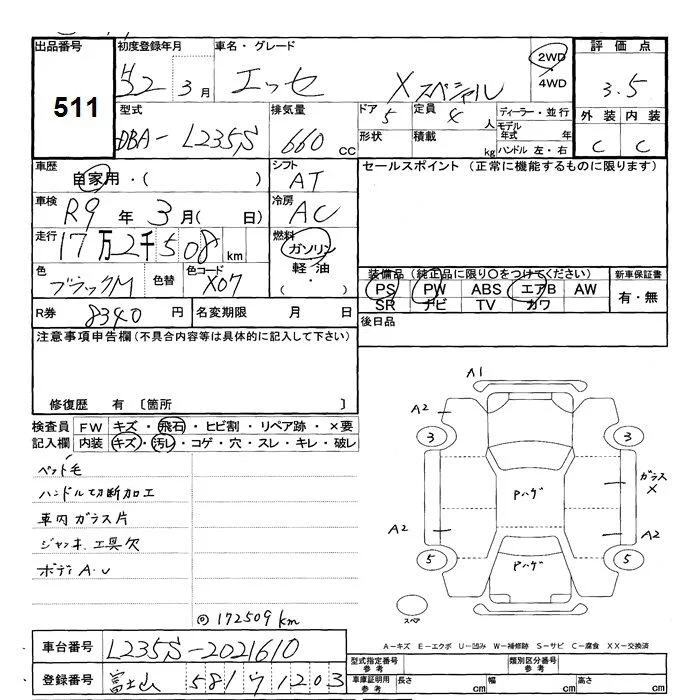 出品番号 初度登録年月 車名・グレード 評価点
511 H22 3月 エッセ Xスペシャル 2WD・4WD 3.5
型式 排気量 ドア 5 定員 4人 ディーラー・並行 外装 内装
DBA-L235S 660cc 形状 積載 kg モデル年式 年 ハンドル 左・右 C C
車歴 自家用・( ) シフト AT セールスポイント(正常に機能するものに限ります)
車検 R9年3月( 日) 冷房 AC
走行 17万2千508km 燃料 ガソリン 軽油 ( ・ )
色 ブラックM 色替 色コード X07 装備品(純正品に限り○をつけてください) 新車保証書
PS PW ABS エアB AW 有・無
SR ナビ TV カワ
R券 8340円 名変期限 月 日 後日品
注意事項申告欄(不具合内容等は具体的に記入して下さい)
修復歴 有 〔箇所 〕
検査員 FW キズ・飛石・ヒビ割・リペア跡・×要
記入欄 内装 キズ・汚レ・コゲ・穴・スレ・キレ・破レ
ペット毛
ハンドル切断加工
車内ガラス片
ジャッキ、工具欠
ボディA.U
◎172509km
A1
A2
3 3
Pハゲ ガラス×
A2 A2
Pハゲ
5 5
スペア
A-キズ E-エクボ U-凹み W-補修跡 S-サビ C-腐食 XX-交換済
車台番号 L235S-2021610
型式指定番号 参考 類別区分番号 参考
登録番号 富士山 581 ワ 1203
車庫証明用 参考 長さ cm 幅 cm 高さ cm